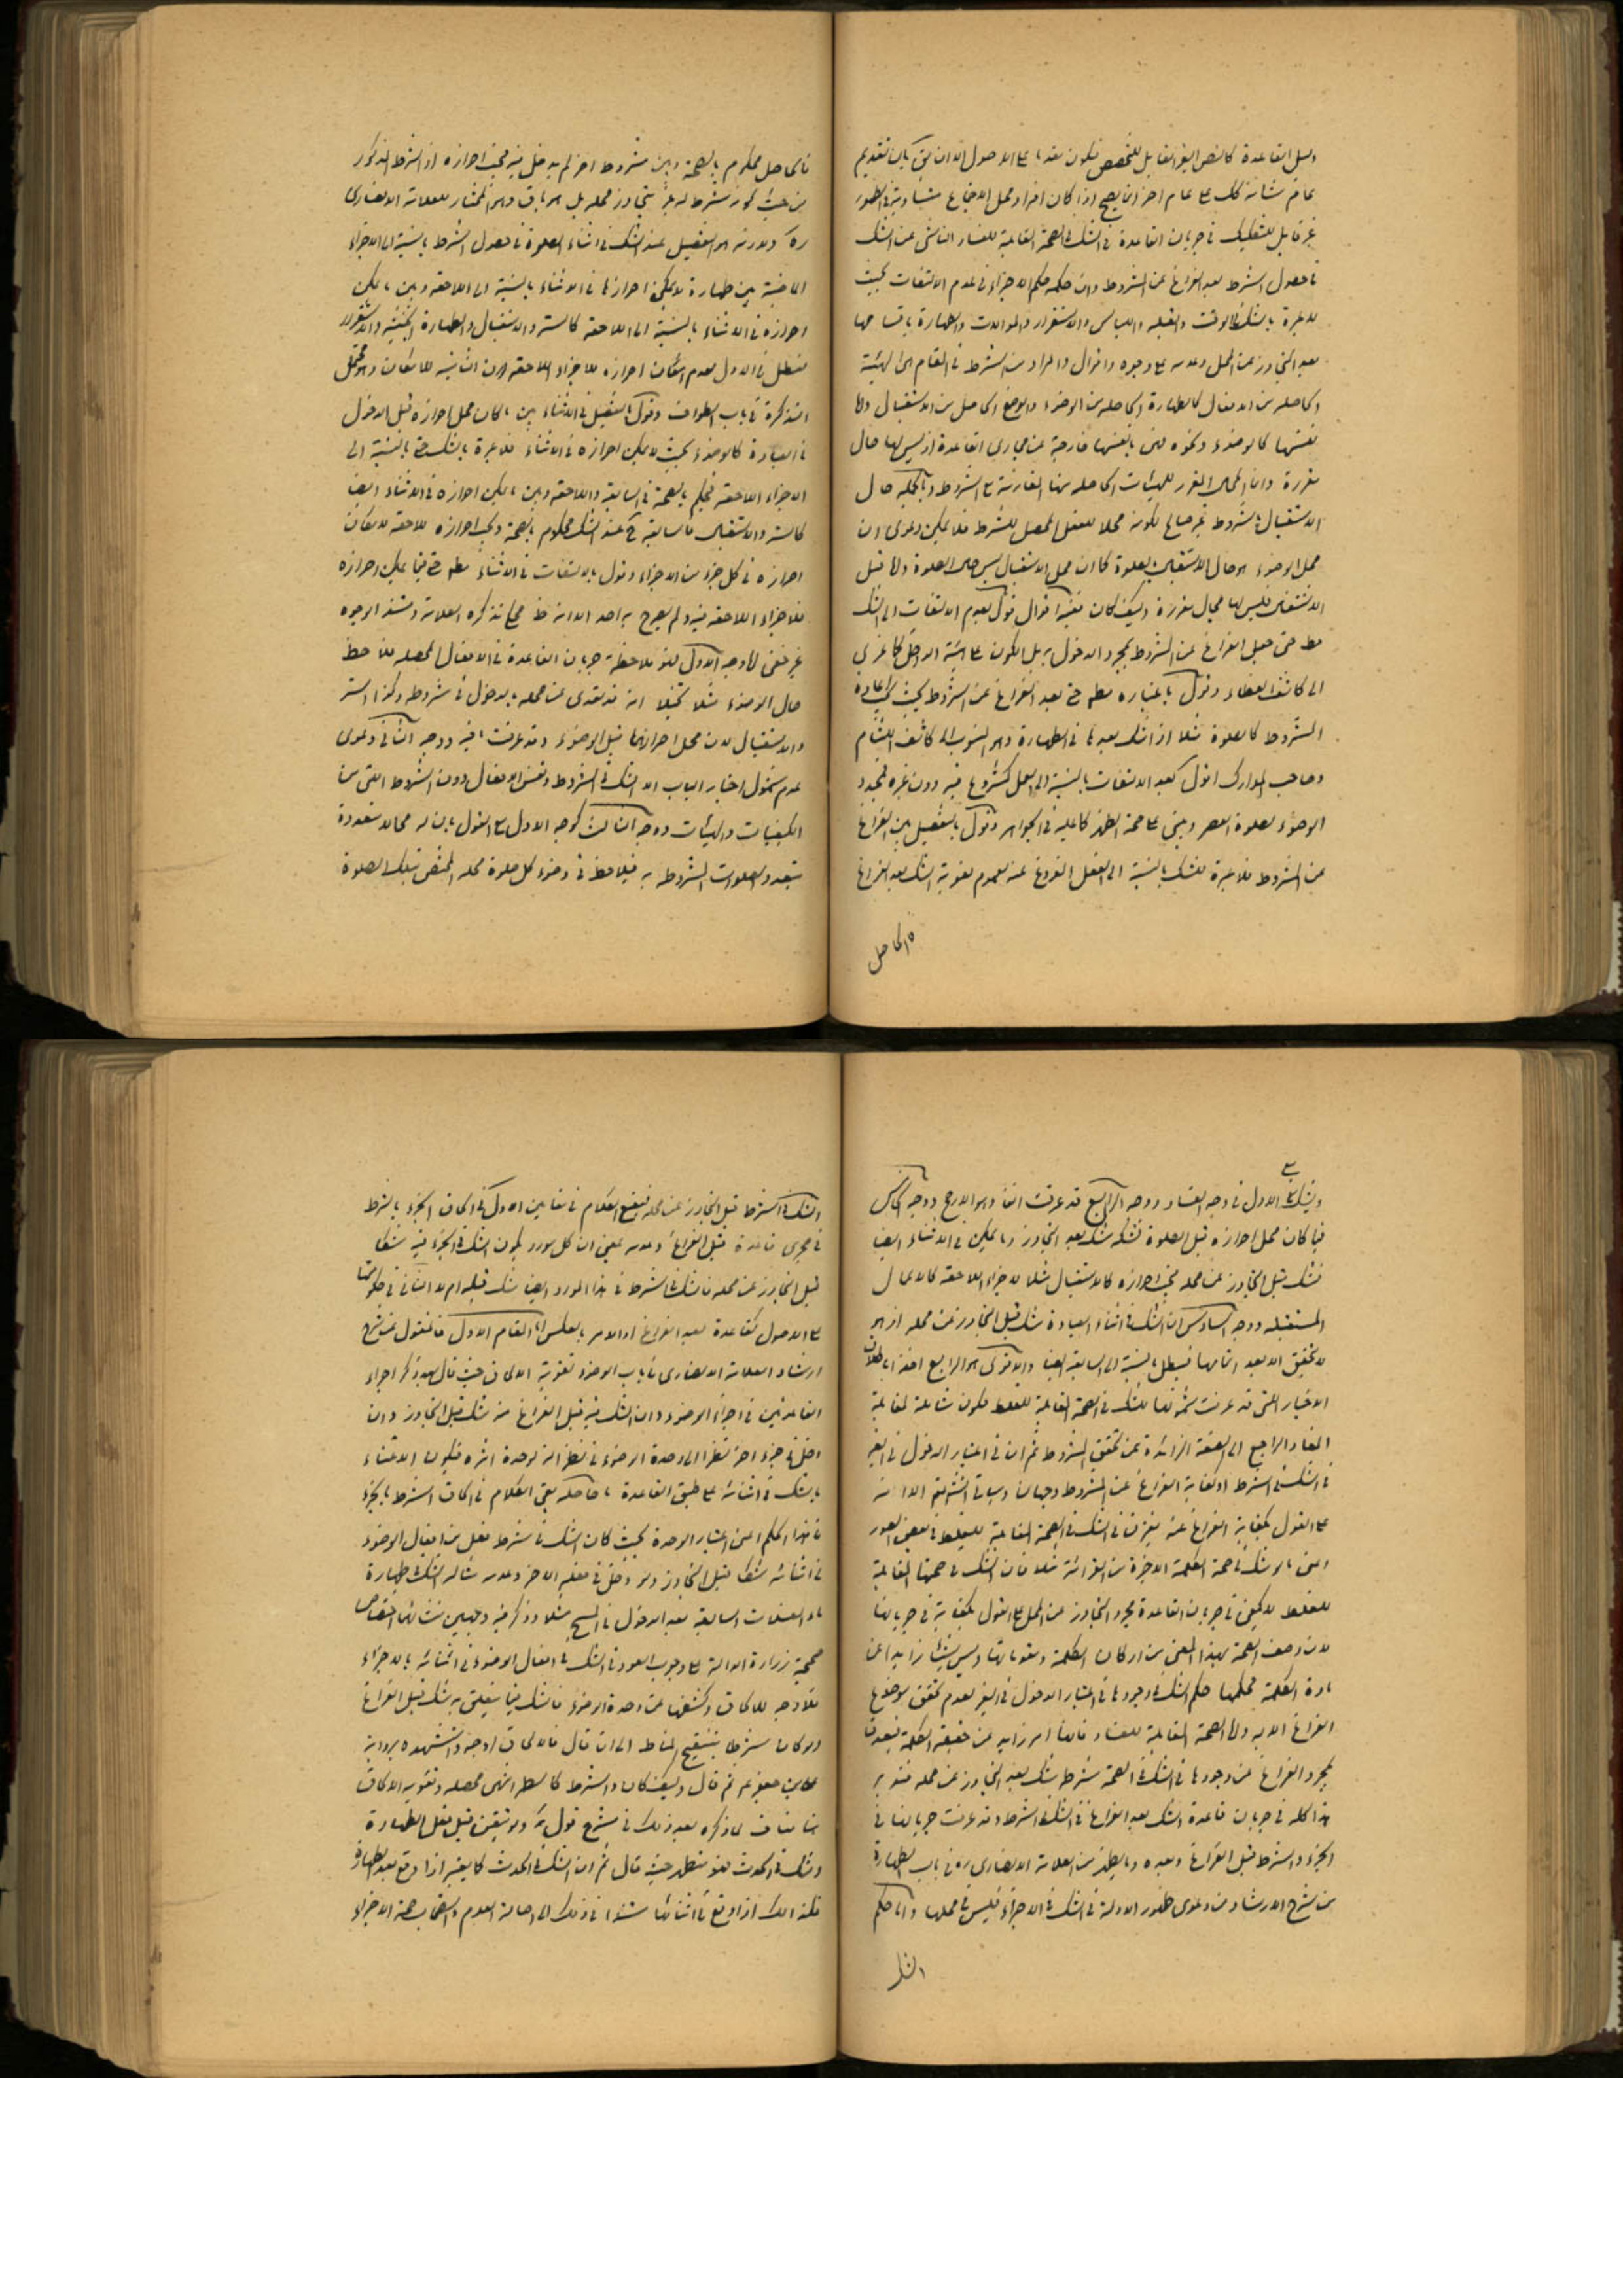 دليل القاعدة كالنص الغير القابل للتخصص فيكون مقدما على الاصول الا ان يقال بان تقديم
عام شانه ذلك على عام اخر انما يصح اذا كان افراد محل الاجتماع متساوية في الظهور
غير قابل للتفكيك في جريان القاعدة في الشك في الصحة المقابلة للفساد الناشى عن الشك
في حصول الشرط بعد الفراغ عن المشروط وان حكمه حكم الاجزاء في عدم الالتفات بحيث
لا عبرة بالشك في الوقت والقبلة واللباس والاستقرار والموالات والطهارة باقسامها
بعد التجاوز عن المحل وعدمه على وجوه واقوال والمراد من الشرط في المقام هى الهيئة
الحاصله من الافعال كالطهارة الحاصله من الوضوء والوضع الحاصل من الاستقبال واما
نفسها كالوضوء ونحوه فهى بانفسها خارجة عن مجارى القاعدة اذ ليس لها محال
مقررة وان المحال المقرر للهيئات الحاصله منها المقارنة مع المشروط وبالجمله حال
الاستقبال بالمشروط غير صالح لكونه محلا للفعل المحصل للشرط فلا يمكن دعوى ان
محل الوضوء هو حال الاشتغال بالصلوة كما ان محل الاستقبال ليس حال الصلوة واما قبل
الاشتغال فليس لها محال مقررة وكيف كان ففيه اقوال قول بعدم الالتفات الى الشك
مط حتى قبل الفراغ عن المشروط بمجرد الدخول بل الكون على هيئة الداخل كما عزى
الى كاشف الغطاء وقول باعتباره مطم حتى بعد الفراغ عن المشروط بحيث يجب اعادة
المشروط كالصلوة مثلا اذا شك بعدها في الطهارة وهو المنسوب الى كاشف اللثام
وصاحب المدارك وقول بعدم الالتفات بالنسبة الى العمل المشروع فيه دون غيره فيجدد
الوضوء لصلوة العصر ويبنى على صحة الظهر كما عليه في الجواهر وقول بالتفصيل بين الفراغ
عن المشروط فلا عبرة للشك بالنسبة الى الفعل المفروغ عنه لعموم لغوية الشك بعد الفراغ
فالحاصل
فالحاصل محكوم بالصحة وبين مشروط اخر لم يدخل فيه فيجب احرازه اذ الشرط المذكور
من حيث كونه شرطا له لم يتجاوز محله بل هو باق وهو المختار للعلامة الانصارى
ره ورابع هو التفصيل عند الشك في اثناء الصلوة في حصول الشرط بالنسبة الى الاجزاء
الماضية بين طهارة لا يمكن احرازها في الاثناء بالنسبة الى اللاحقه وبين ما يمكن
احرازه في الاثناء بالنسبة الى اللاحقة كالستر والاستقبال والطهارة الخبثيه والاستقرار
فتبطل في الاول لعدم امكان احرازه للاجزاء اللاحقه دون الثانيه للامكان وهو محتمل
التذكرة في باب الطواف وقول بالتفصيل في الاثناء بين ما كان محل احرازه قبل الدخول
في العبادة كالوضوء بحيث لا يمكن احرازه في الاثناء فلا عبرة بالشك حتى بالنسبة الى
الاجزاء اللاحقه فيحكم بالصحة في السابقة واللاحقه وبين ما يمكن احرازه في الاثناء ايضا
كالستر والاستقبال فالسابقة ح عند الشك محكوم بالصحة ويجب احرازه للاحقه لامكان
احرازه في كل جزء من الاجزاء وقول بالالتفات في الاثناء مطم حتى فيما يمكن احرازه
للاجزاء اللاحقه فيه ولم يصرح به احد الا انه ظ محكى تذكره العلامة ومستند الوجوه
غير خفى اما وجه الاول فهو ملاحظة جريان القاعدة في الافعال المحصله فلاحظ
حال الوضوء مثلا تخيلا انه قد تعدى عن محله بالدخول في مشروطه وكذا الستر
والاستقبال لان محل احرازهما قبل الوضوء وقد عرفت ما فيه ووجه الثانى دعوى
عدم شمول اخبار الباب الا الشك في المشروط ونفس الافعال دون الشروط التى من
الكيفيات والهيئات ووجه الثالث كوجه الاول مع القول بان له محالا متعددة
بتعدد الصلوات المشروطه به فيلاحظ في وضوء كل صلوة محله المختص بتلك الصلوة
ويشكل الاول في وجه الفساد ووجه الرابع قد عرفت انفا وهو الارجح ووجه الخامس
فيما كان محل احرازه قبل الصلوة فشكه شك بعد التجاوز وما يمكن في الاثناء ايضا
فشك قبل التجاوز عن محله فيجب احرازه كالاستقبال مثلا للاجزاء اللاحقه كالاعمال
المستقبله ووجه السادس ان الشك في اثناء العبادة شك قبل التجاوز عن محله اذ هو
لا يتحقق الا بعد اتمامها فيبطل بالنسبة الى السابقه ايضا والاقوى هو الرابع اخذا باطلاق
الاخبار التى قد عرفت شمولها للشك في الصحة المقابلة للغلط فيكون شاملة لمقابلة
الفساد الراجع الى الصفة الزائدة عن تحقق المشروط ثم ان في اعتبار الدخول في الغير
في الشك في الشرط او كفاية الفراغ عن المشروط وجهان وسياتى انشاء الله تعالى الا انه
على القول بكفاية الفراغ عنه يفرق في الشك في الصحة المقابلة للغلط في بعض الصور
اعنى ما لو شك في صحة الكلمة الاخيرة من القرائة مثلا فان الشك في صحتها المقابلة
للغلط لا يكفى في جريان القاعدة مجرد التجاوز عن المحل على القول بكفايته في جريانها
لان وصف الصحة بهذا المعنى من اركان الكلمة ومقوماتها وليس شيئا زايدا عن
مادة الكلمة فحكمها حكم الشك في وجودها في اعتبار الدخول في الغير لعدم تحقق موضوع
الفراغ الا به واما الصحة المقابلة للفساد فانها امر زايد عن حقيقة الكلمة فيصدق
بمجرد الفراغ عن وجودها في الشك في الصحة شرطه شك بعد التجاوز عن محله فتدبر
هذا كله في جريان قاعدة الشك بعد الفراغ في الشك في الشرط وقد عرفت جريانها في
الجزء والشرط قبل الفراغ وبعده وما يظهر من العلامة الانصارى ره في باب الطهارة
من شرح الارشاد من دعوى ظهور الادلة في الشك في الاجزاء فليس في محلها واما حكم
الشك
الشك في الشرط قبل التجاوز عن محله فيقع الكلام في مقامين الاول في الحاق الجزء بالشرط
في مجرى قاعدة قبل الفراغ وعدمه بمعنى ان كل مورد يكون الشك في الجزء فيه شكا
قبل التجاوز عن محله فالشك في الشرط في هذا المورد ايضا شك قبله ام لا الثانى في حكومتها
على الاصول كقاعدة بعد الفراغ او الامر بالعكس اما المقام الاول فالمنقول عن شرح
ارشاد العلامة الانصارى في باب الوضوء تقوية الالحاق حيث قال بعد ذكر اجراء
القاعدتين في اجزاء الوضوء وان الشك فيه قبل الفراغ منه شك قبل التجاوز وان
دخل في جزء اخر نظرا الى وحدة الوضوء في نظر الشارع لوحدة اثره فيكون الاعتناء
بالشك في اثنائه على طبق القاعدة ما حاصله بقى الكلام في الحاق الشرط بالجزء
في هذا الحكم اعنى اعتبار الوحدة بحيث كان الشك في شرط فعل من افعال الوضوء
في اثنائه شكا قبل التجاوز ولو دخل في فعله الاخر وعدمه مثاله الشك في طهارة
ماء الغسلات السابقة بعد الدخول في المسح مثلا وذكر فيه وجهين منشائهما اختصاص
صحيحة زرارة الدالة على وجوب العود في الشك في افعال الوضوء في اثنائه بالاجزاء
فلا وجه للالحاق وكشفها عن وحدة الوضوء فالشك فيما يتعلق به شك قبل الفراغ
ولو كان شرطا بتنقيح المناط الى ان قال فالالحاق اوجه واستشهده برواية
على بن جعفر ع ثم قال وكيف كان والشرط كالشطر انتهى محصله وتقويته الالحاق
هنا مناف لما ذكره بعد ذلك في شرح قول يه ولو تيقن قبل فعل الطهارة
وشك في الحدث فهو متطهر حيث قال ثم ان الشك في الحدث كما يعتبر اذا وقع بعد الطهارة
فكذا لك اذا وقع في اثنائها مستندا في ذلك الى اصالة العدم واستصحاب صحة الاجزاء